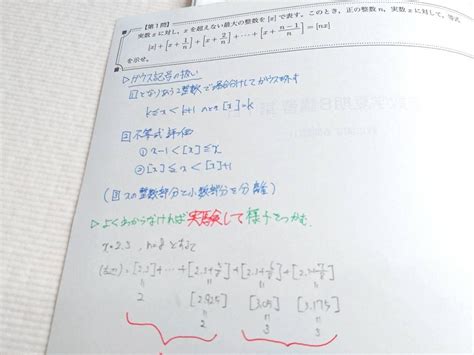 【第1問】
実数xに対し，xを超えない最大の整数を[x]で表す。このとき，正の整数n，実数xに対して，等式
[x]+[x+1/n]+[x+2/n]+…+[x+(n-1)/n]=[nx]
を示せ。
▷ガウス記号の扱い
① となりあう2整数で場合分けしてガウス外す
k≦x<k+1 のとき [x]=k
② 不等式評価
① x-1<[x]≦x
② [x]≦x<[x]+1
(③ xの整数部分と小数部分を分離)
▷よくわからなければ実験して様子をつかむ
x=2.3, n=8 とすると
(左辺)=[2.3]+…+[2.3+5/8]+[2.3+6/8]+[2.3+7/8]
2 [2.925] [3.05] [3.175]
2 3 3